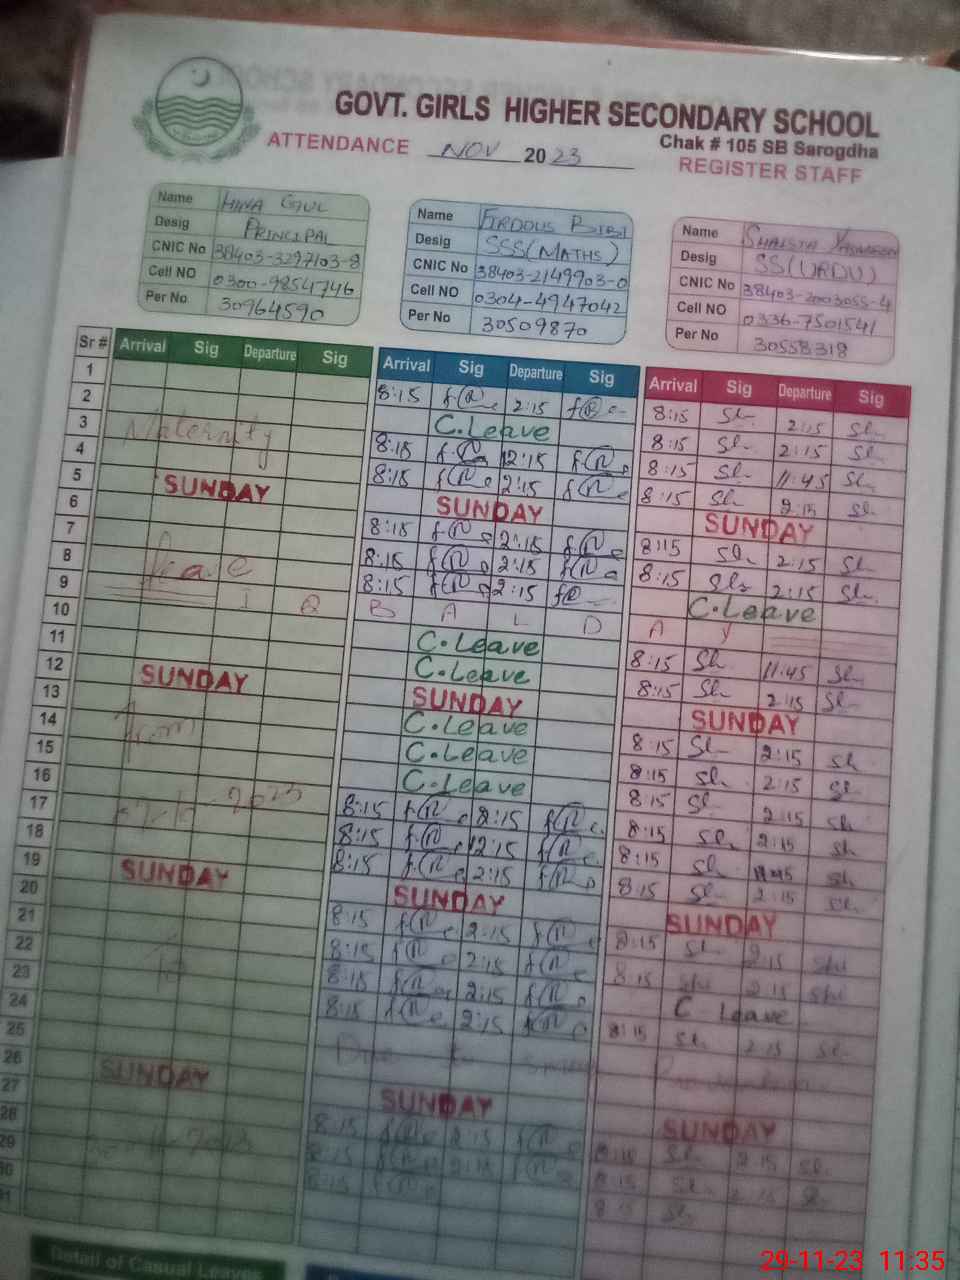 GOVT. GIRLS HIGHER SECONDARY SCHOOL
Chak # 105 SB Sarogdha
ATTENDANCE NOV 2023
REGISTER STAFF
Name HINA GUL
Desig PRINCIPAL
CNIC No 38403-3297103-8
Cell NO 0300-9854746
Per No 30964590
Name FIRDOUS BIBI
Desig SSS(MATHS)
CNIC No 38403-2149903-0
Cell NO 0304-4947042
Per No 30509870
Name SHAISTA YASMEEN
Desig SS(URDU)
CNIC No 38403-2003055-4
Cell NO 0336-7501541
Per No 30558318
Sr # Arrival Sig Departure Sig Arrival Sig Departure Sig Arrival Sig Departure Sig
1 8:15 2:15 8:15 Sh 2:15 Sh
2 C.Leave 8:15 Sh 2:15 Sh
3 Maternity 8:15 12:15 8:15 Sh 11:45 Sh
4 8:15 2:15 8:15 Sh 2:15 Sh
5 SUNDAY SUNDAY SUNDAY
6 8:15 2:15 8:15 Sh 2:15 Sh
7 8:15 2:15 8:15 Sh 2:15 Sh
8 leave 8:15 2:15 C.Leave
9 I Q B A L D A Y
10 C.Leave 8:15 Sh 11:45 Sh
11 C.Leave 8:15 Sh 2:15 Sh
12 SUNDAY SUNDAY SUNDAY
13 from C.Leave 8:15 Sh 2:15 Sh
14 C.Leave 8:15 Sh 2:15 Sh
15 C.Leave 8:15 Sh 2:15 Sh
16 2023 8:15 2:15 8:15 Sh 2:15 Sh
17 8:15 12:15 8:15 Sh Sh
18 8:15 2:15 8:15 Sh 2:15 Sh
19 SUNDAY SUNDAY SUNDAY
20 8:15 2:15 8:15 Sh 2:15
21 8:15 2:15 8:15 2:15
22 to 8:15 2:15 C Leave
23 8:15 2:15 8:15 Sh 2:15 Sh
24 Due to
25
26 SUNDAY SUNDAY SUNDAY
27 8:15 2:15 8:15 Sh 2:15 Sh
28 2023 8:15 2:15 8:15 Sh 2:15
29 8:15 8:15 Sh
30
31
Detail of Casual
29-11-23 11:35